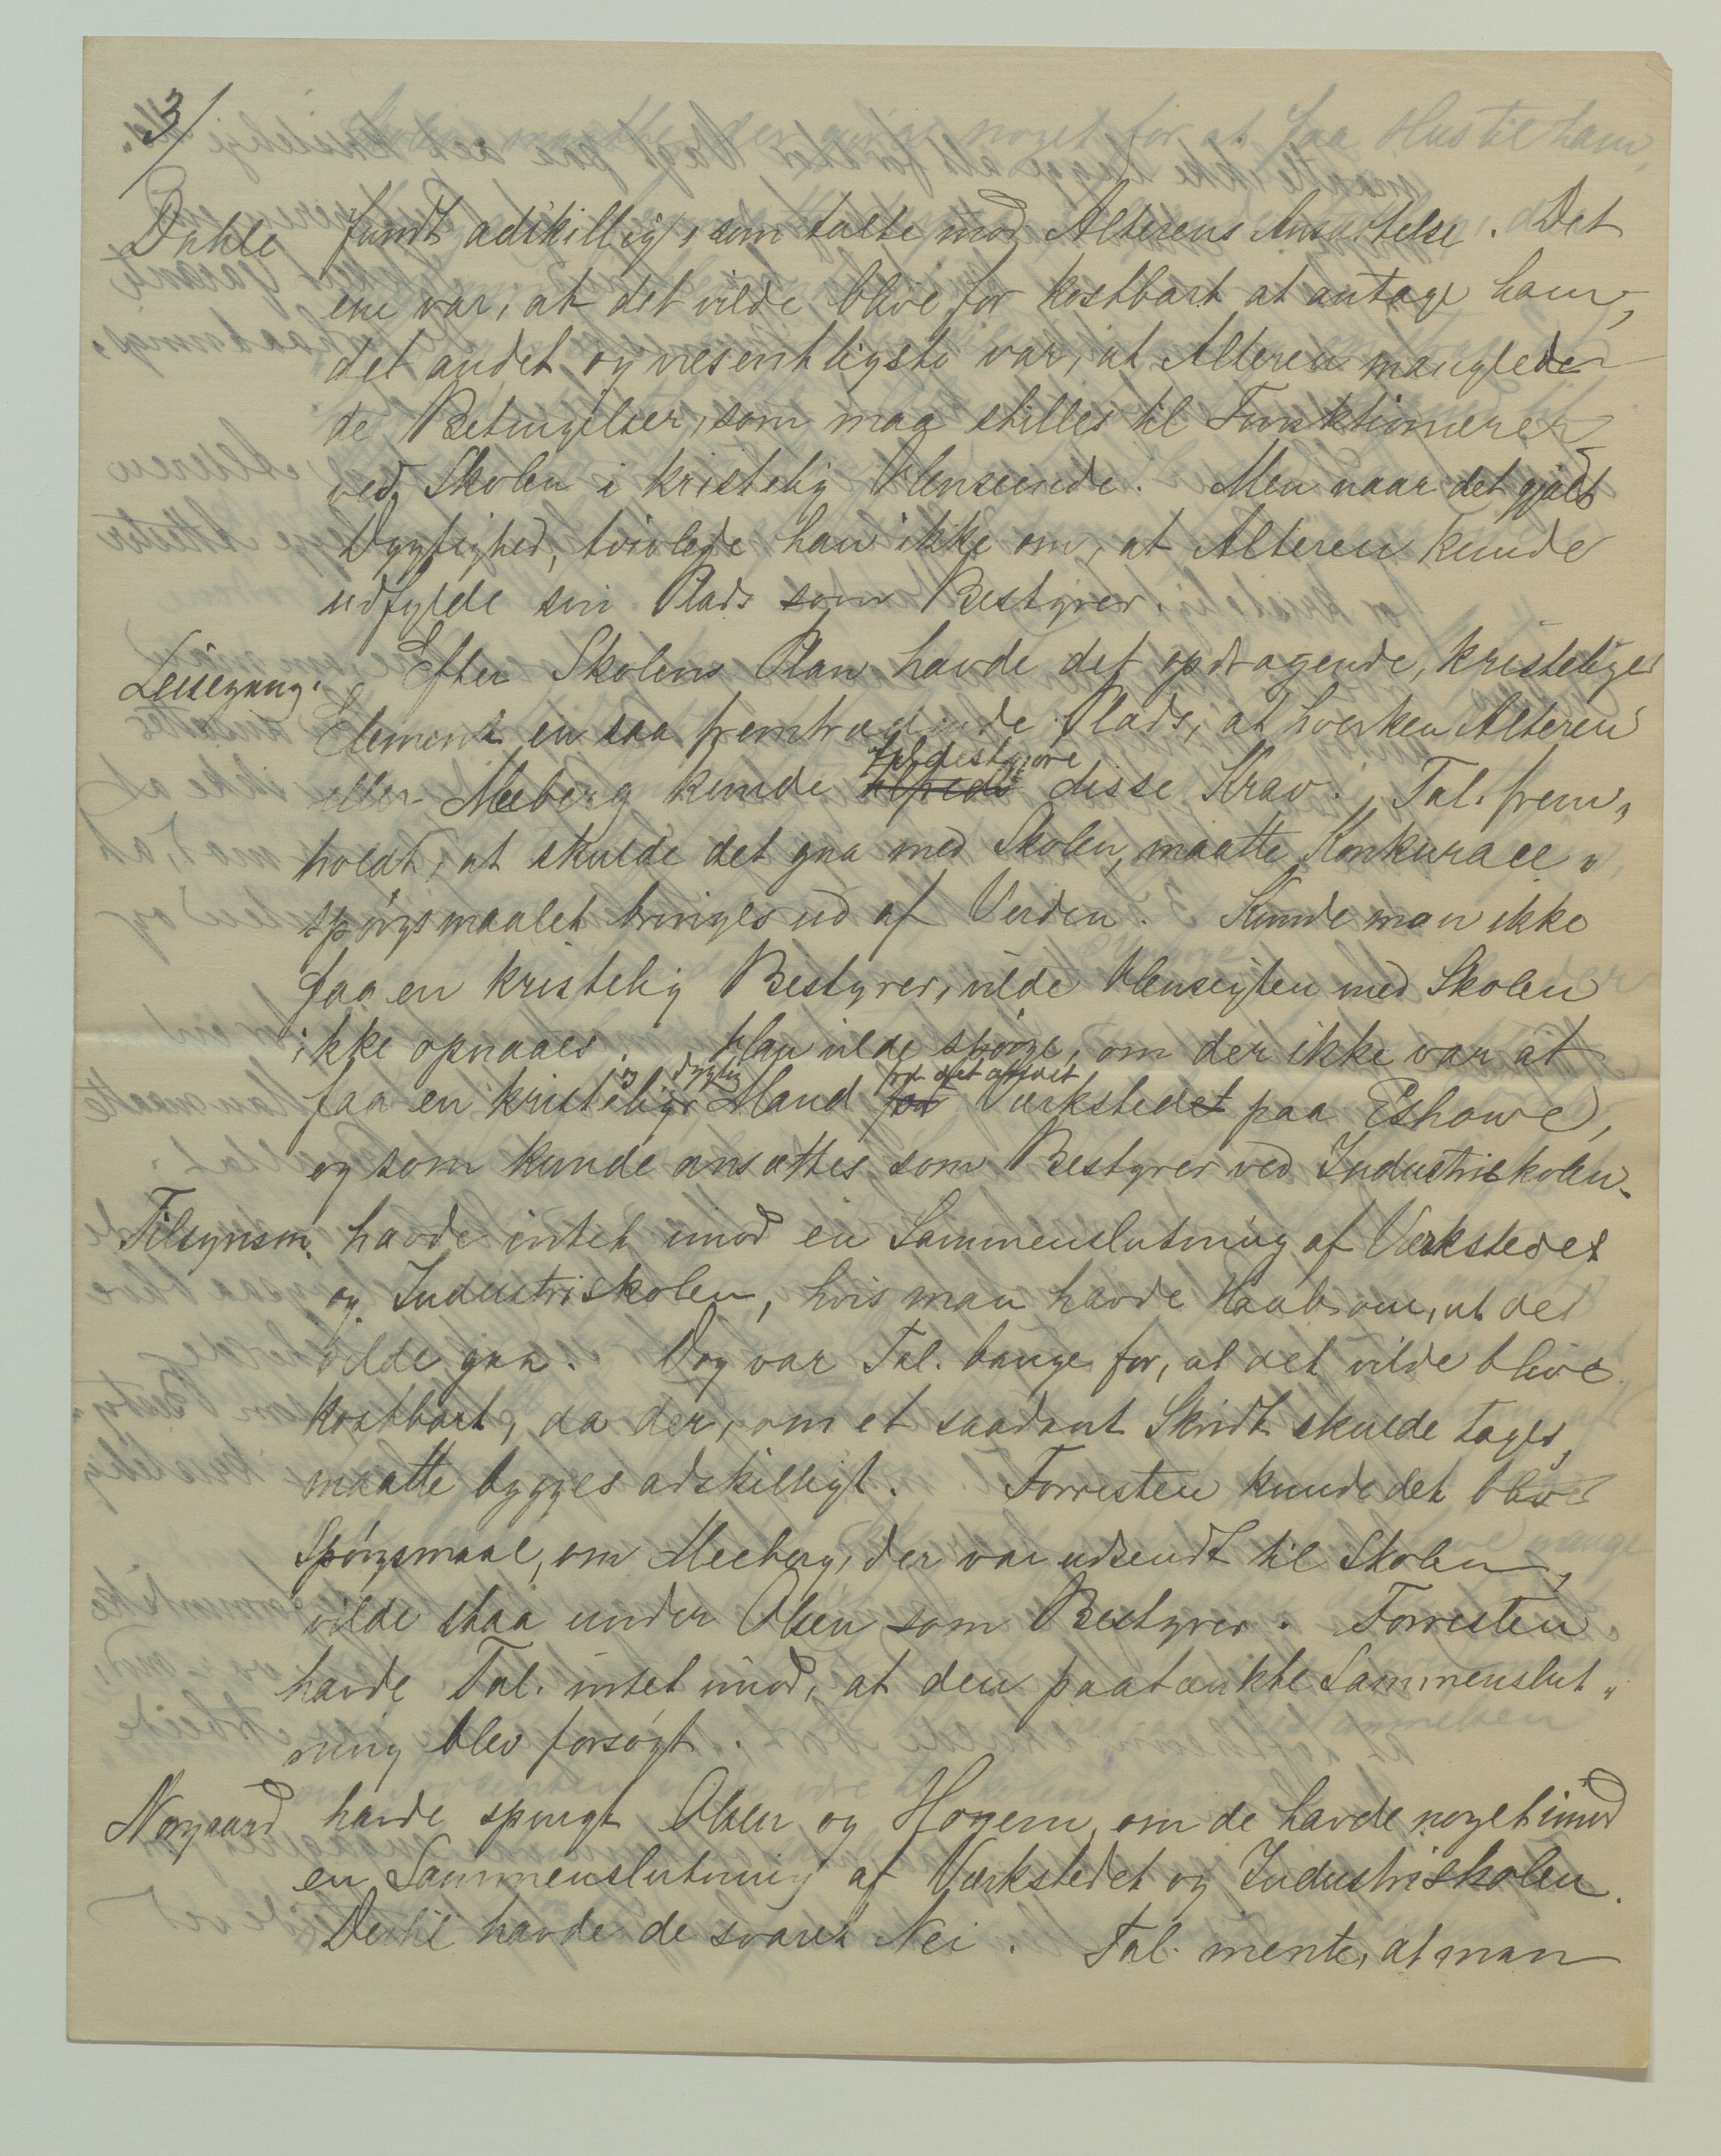 3/
Dahle fandt adskilligt, som talte mod Alterens Ansættelse. Det
ene var, at det vilde blive for kostbart at antage ham,
det andet og væsentligste var, at Alteren manglede
de Betingelser, som maa stilles til Funktionærer
ved Skolen i kristelig Henseende. Men naar det gjaldt
Dygtighed, tvivlede han ikke om, at Alteren kunde
udfylde sin Plads som Bestyrer.
Leisegang. Efter Skolens Plan havde det opdragende, kristelige
Element en saa fremtrædende Plads, at hverken Alteren
fyldestgjøre
eller Meeberg kunde disse Krav. Tal. frem„
holdt, at skulde det gaa med Skolen, maatte Konkurace„
spørgsmaalet bringes ud af Verden. Kunde man ikke
faa en kristelig Bestyrer, vilde Hensigten med Skolen
ikke opnaaes. Han vilde spørge, om der ikke var at
og dygtig
faa en kristelig Mand Værkstedet paa Eshowe,
og som kunde ansættes som Bestyrer ved Industriskolen.
Tilsynsm. havde intet imod en Sammenslutning af Værkstedet
og Industriskolen, hvis man havde Haab om, at det
vilde gaa. Dog var Tal. bange for, at det vilde blive
kostbart, da der, om et saadant Skridt skulde tages,
maatte bygges adskilligt. Forresten kunde det blive
Spørgsmaal, om Meeberg, der var udsendt til Skolen,
vilde staa under Olsen som Bestyrer. Forresten
havde Tal. intet imod, at den paatænkte Sammenslut„
ning blev forsøgt.
Norgaard havde spurgt Olsen og Hogem, om de havde noget imod
en Sammenslutning af Værkstedet og Industriskolen.
Dertil havde de svaret Nei. Tal. mente, at man